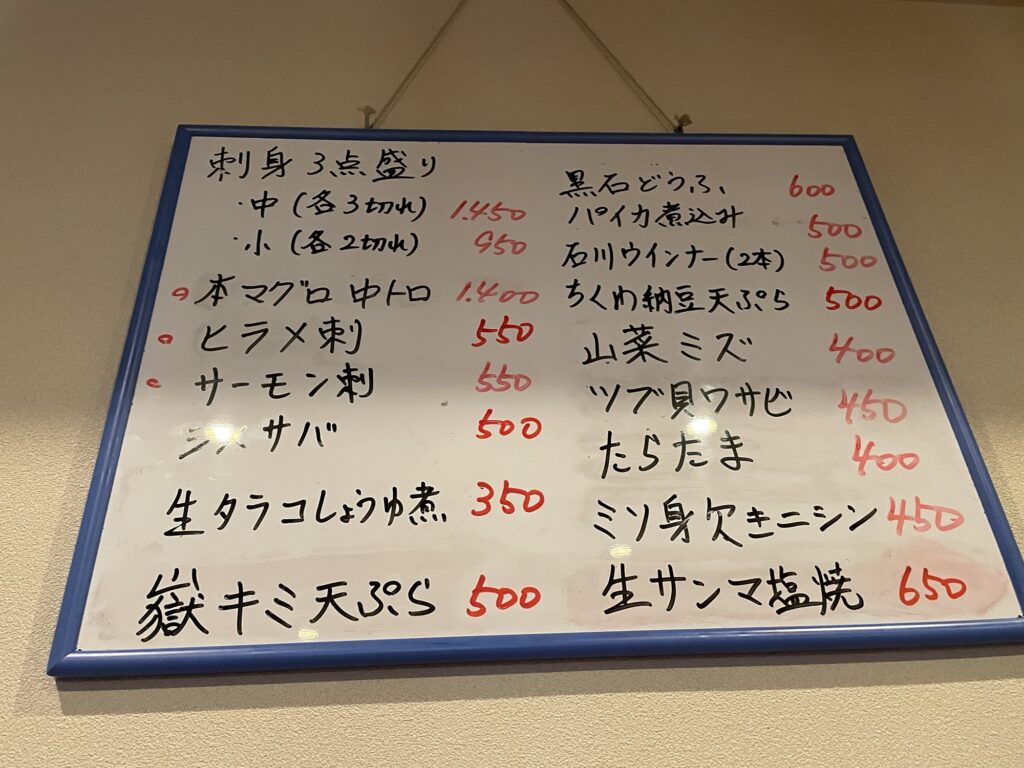 刺身 3点盛り
・中 (各3切れ) 1.450
・小 (各2切れ) 950
○本マグロ 中トロ 1.400
○ヒラメ刺 550
○サーモン刺 550
シメサバ 500
生タラコしょうゆ煮 350
嶽キミ天ぷら 500
黒石どうふ 600
バイカ煮込み 500
石川ウインナー(2本) 500
ちくわ納豆天ぷら 500
山菜ミズ 400
ツブ貝ワサビ 450
たらたま 400
ミソ身欠きニシン 450
生サンマ塩焼 650